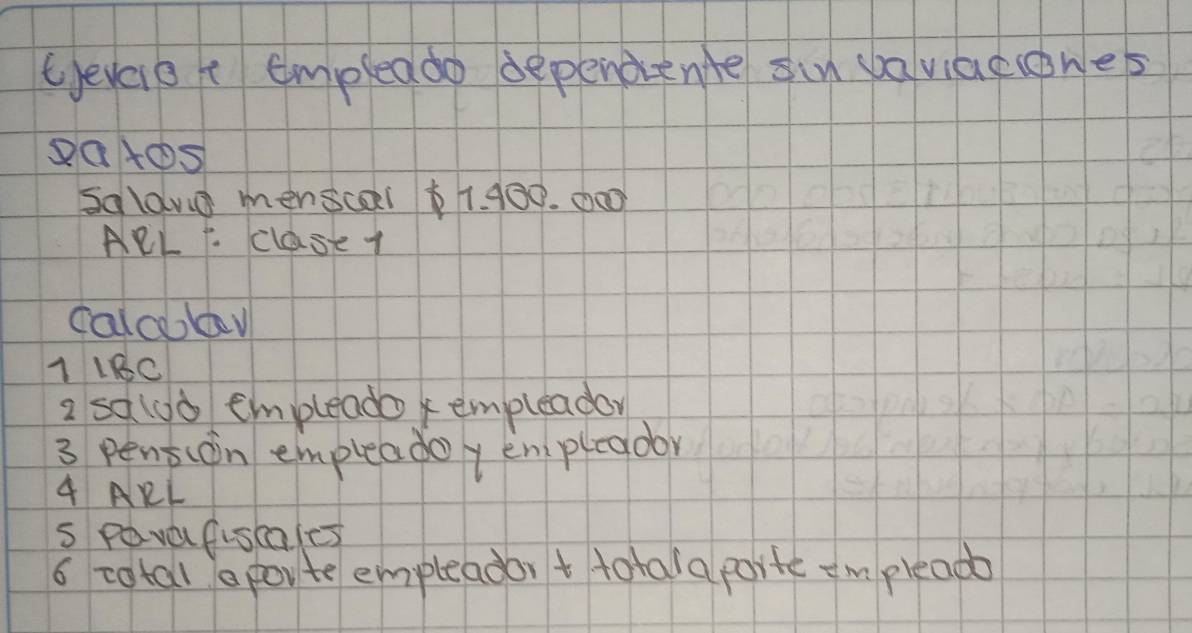 Ejercicio 1 Empleado dependiente sin variaciones
Datos
Salario mensual $ 1.900.000
ARL : clase 1
Calcular
1 IBC
2 salud empleado y empleador
3 pensión empleado y empleador
4 ARL
5 Parafiscales
6 total aporte empleador + total aporte empleado